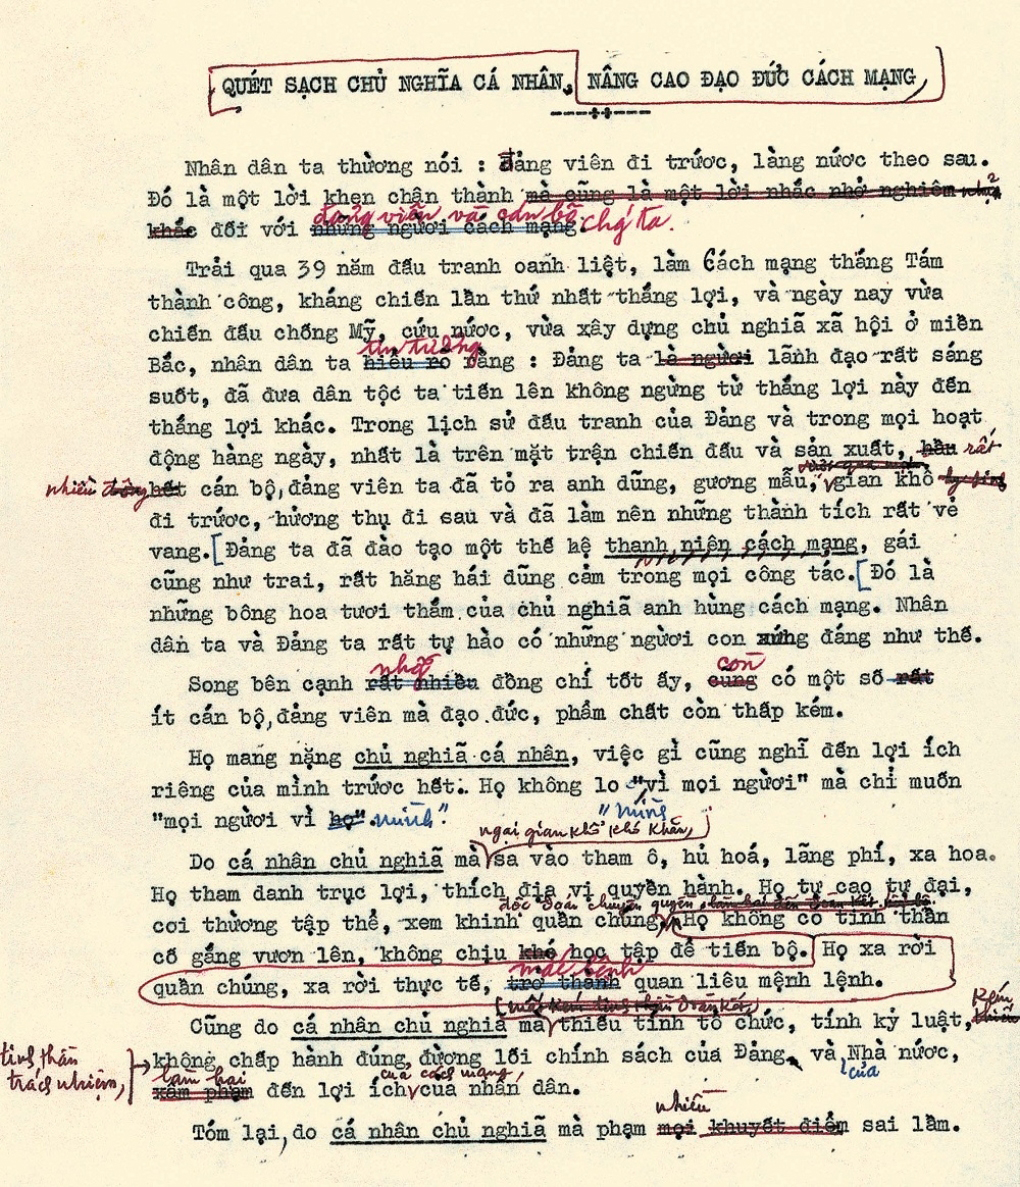 QUÉT SẠCH CHỦ NGHĨA CÁ NHÂN, NÂNG CAO ĐẠO ĐỨC CÁCH MẠNG
Nhân dân ta thường nói : Đảng viên đi trước, làng nước theo sau.
Đó là một lời khen chân thành mà cũng là một lời nhắc nhở nghiêm
đảng viên và cán bộ chúng ta.
khắc đối với những người cách mạng.
Trải qua 39 năm đấu tranh oanh liệt, làm Cách mạng tháng Tám
thành công, kháng chiến lần thứ nhất thắng lợi, và ngày nay vừa
chiến đấu chống Mỹ, cứu nước, vừa xây dựng chủ nghiã xã hội ở miền
tin tưởng
Bắc, nhân dân ta hiểu rõ rằng : Đảng ta là người lãnh đạo rất sáng
suốt, đã đưa dân tộc ta tiến lên không ngừng từ thắng lợi này đến
thắng lợi khác. Trong lịch sử đấu tranh của Đảng và trong mọi hoạt
động hàng ngày, nhất là trên mặt trận chiến đấu và sản xuất, hầu rất
nhiều hết cán bộ, đảng viên ta đã tỏ ra anh dũng, gương mẫu, gian khổ
đi trước, hưởng thụ đi sau và đã làm nên những thành tích rất vẻ
vang. [Đảng ta đã đào tạo một thế hệ thanh niên cách mạng, gái
cũng như trai, rất hăng hái dũng cảm trong mọi công tác. [Đó là
những bông hoa tươi thắm của chủ nghiã anh hùng cách mạng. Nhân
dân ta và Đảng ta rất tự hào có những người con xứng đáng như thế.
còn
Song bên cạnh rất nhiều đồng chí tốt ấy, cũng có một số rất
ít cán bộ, đảng viên mà đạo đức, phẩm chất còn thấp kém.
Họ mang nặng chủ nghiã cá nhân, việc gì cũng nghĩ đến lợi ích
riêng của mình trước hết. Họ không lo "vì mọi người" mà chỉ muốn
"mọi người vì họ". mình".
"mình
ngại gian khổ khó khăn,
Do cá nhân chủ nghiã mà sa vào tham ô, hủ hoá, lãng phí, xa hoa.
Họ tham danh trục lợi, thích địa vị quyền hành. Họ tự cao tự đại,
độc đoán chuyên quyền,
coi thường tập thể, xem khinh quần chúng, Họ không có tinh thần
cố gắng vươn lên, không chịu khó học tập để tiến bộ. Họ xa rời
mắc bệnh
quần chúng, xa rời thực tế, trở thành quan liêu mệnh lệnh.
Cũng do cá nhân chủ nghiã mà thiếu tính tổ chức, tính kỷ luật, kém
tinh thần
không chấp hành đúng đường lối chính sách của Đảng và Nhà nước,
trách nhiệm,
của
làm hại
của cách mạng,
xâm phạm đến lợi ích của nhân dân.
nhiều
Tóm lại, do cá nhân chủ nghiã mà phạm mọi khuyết điểm sai lầm.